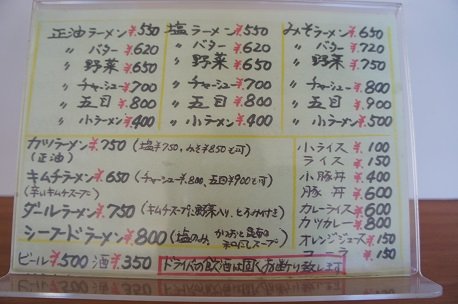 正油ラーメン ¥550
〃 バター ¥620
〃 野菜 ¥650
〃 チャーシュー ¥700
〃 五目 ¥800
〃 小ラーメン ¥400
塩ラーメン ¥550
〃 バター ¥620
〃 野菜 ¥650
〃 チャーシュー ¥700
〃 五目 ¥800
〃 小ラーメン ¥400
みそラーメン ¥650
〃 バター ¥720
〃 野菜 ¥750
〃 チャーシュー ¥800
〃 五目 ¥900
〃 小ラーメン ¥500
カツラーメン ¥750 (塩¥750、みそ¥850も可)
(正油)
キムチラーメン ¥650 (チャーシュー¥800、五目¥900も可)
(辛いキムチスープ)
ダールラーメン ¥750 (キムチスープに野菜入り、とろみ付き)
シーフードラーメン ¥800 (塩のみ、かつおと昆布の
スープ)
ビール ¥500 酒 ¥350
ドライバーの飲酒は固くお断り致します
小ライス ¥100
ライス ¥150
小豚丼 ¥400
豚丼 ¥600
カレーライス ¥600
カツカレー ¥800
オレンジジュース ¥150
コーラ ¥150